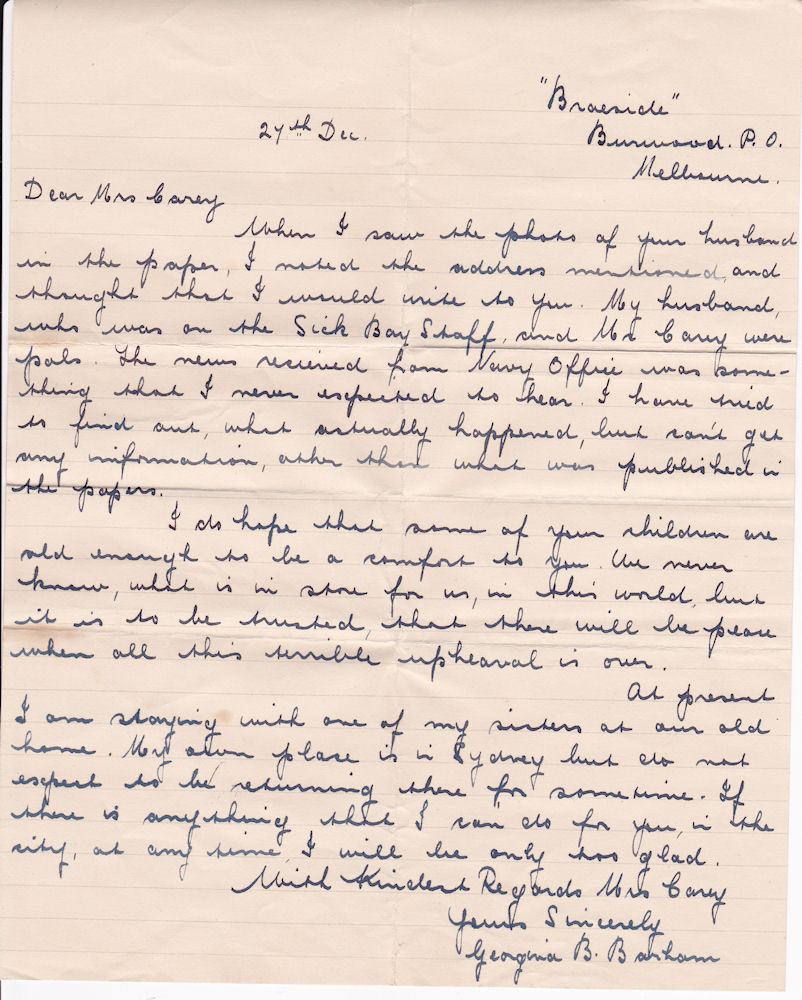 "Braeside"
27th Dec.
Burwood. P. O.
Melbourne.
Dear Mrs Carey
When I saw the photo of your husband
in the paper, I noted the address mentioned, and
thought that I would write to you. My husband,
who was on the Sick Bay Staff, and Mr Carey were
pals. The news received from Navy Office was some-
thing that I never expected to hear. I have tried
to find out, what actually happened, but can't get
any information, other than what was published in
the papers.
I do hope that some of your children are
old enough to be a comfort to you. We never
know, what is in store for us, in this world, but
it is to be trusted, that there will be peace
when all this terrible upheaval is over.
At present
I am staying with one of my sisters at our old
home. My own place is in Sydney but do not
expect to be returning there for sometime. If
there is anything that I can do for you, in the
city, at any time, I will be only too glad.
With Kindest Regards Mrs Carey
Yours Sincerely
Georgina B. Barham